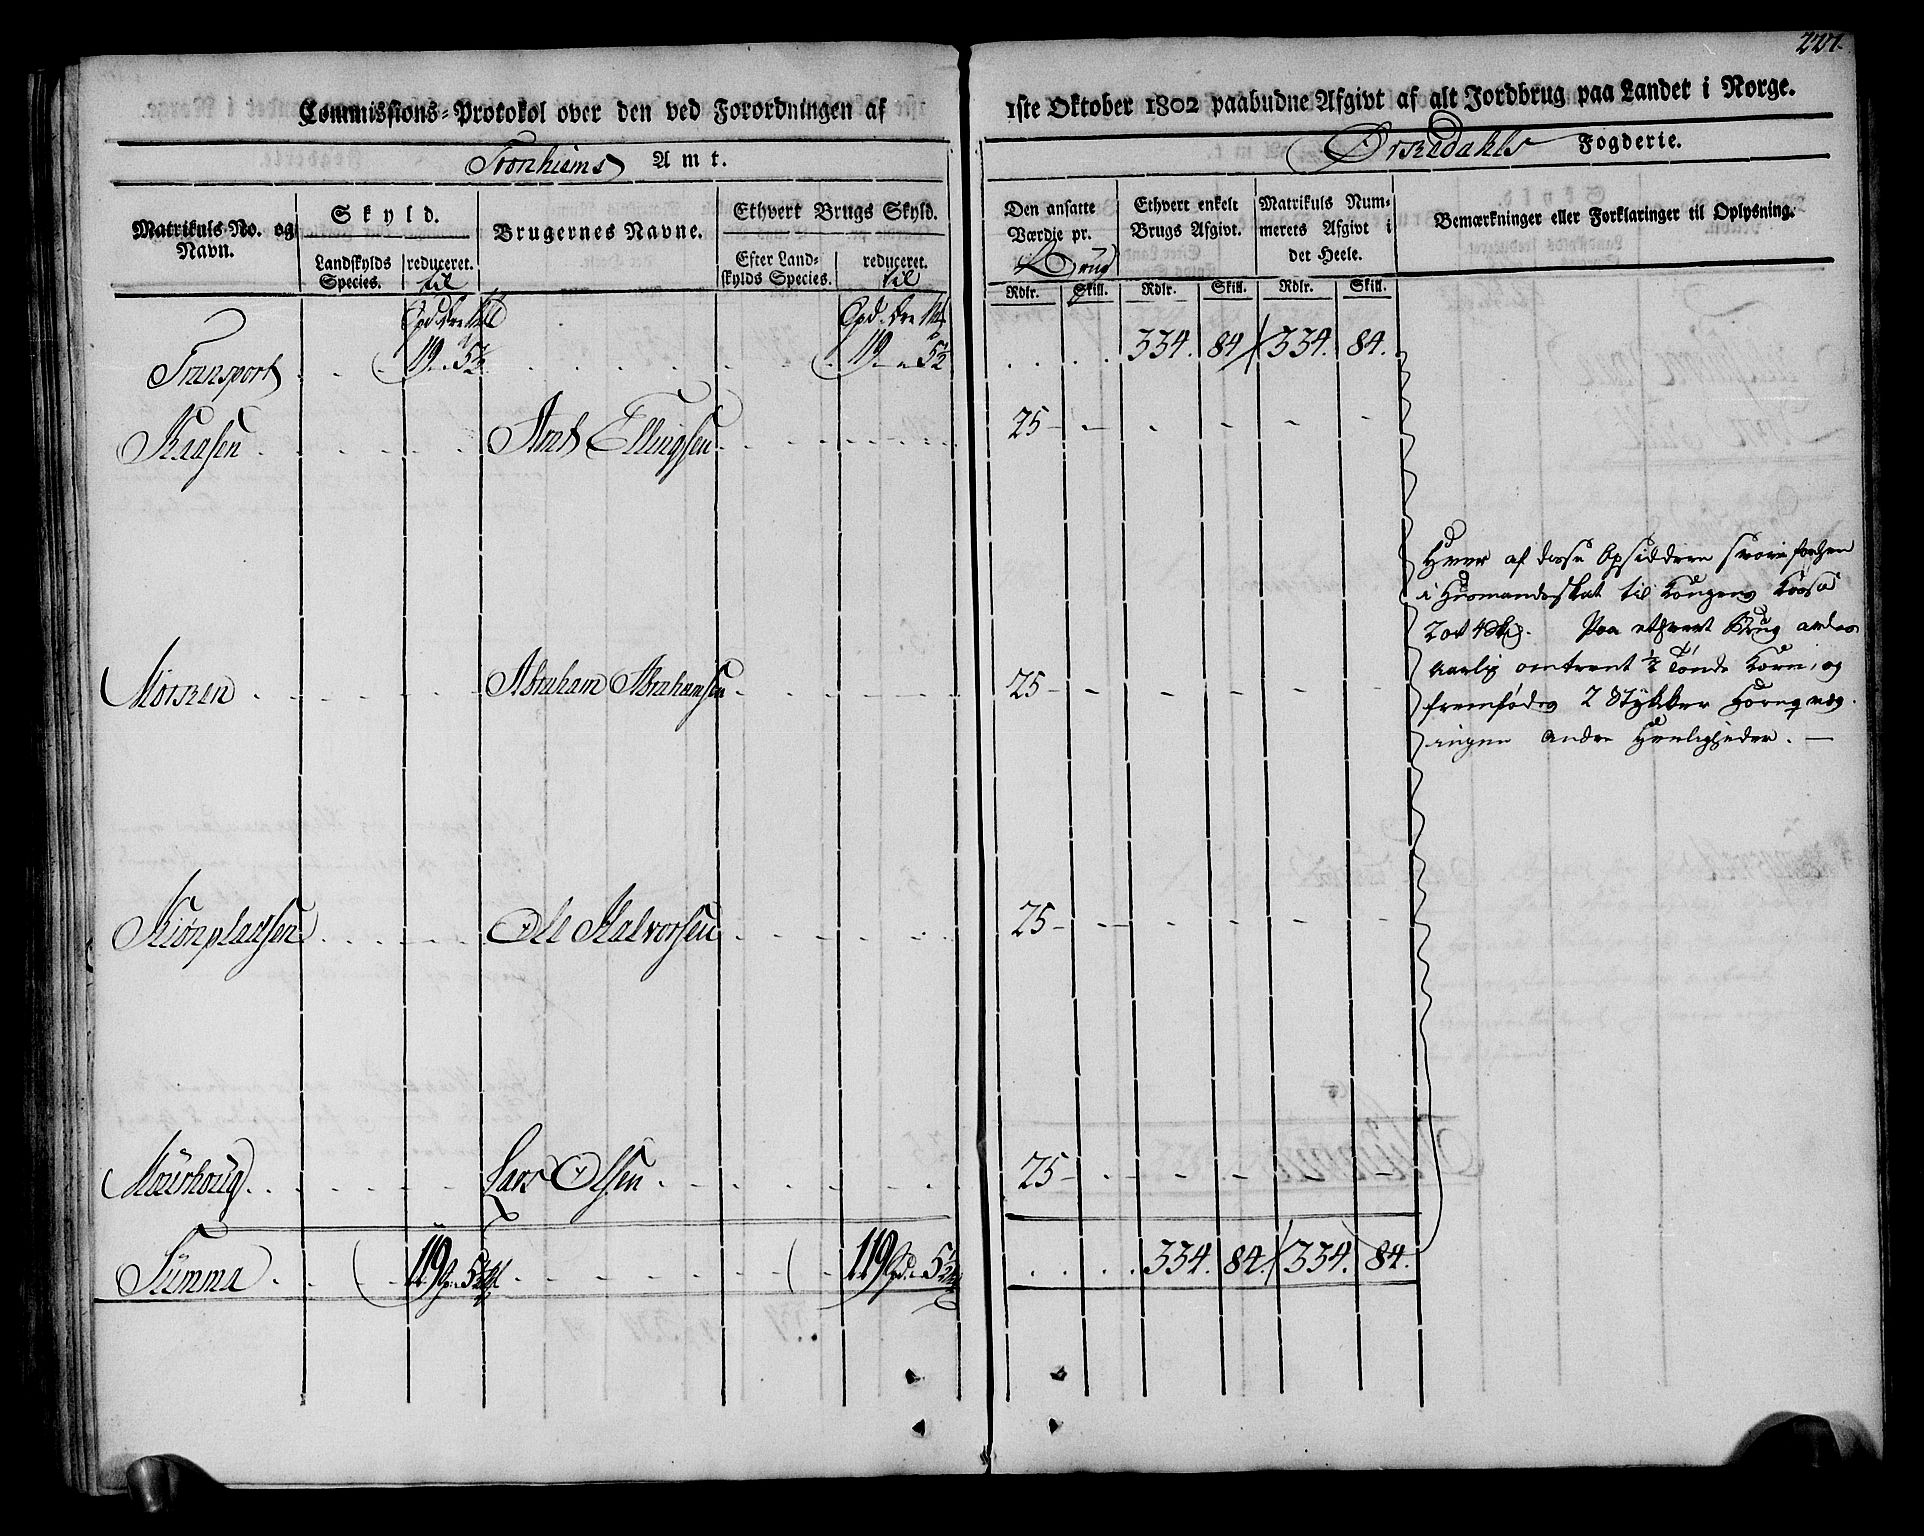 227.
Commissions-Protokol over den ved Forordningen af 1ste Oktober 1802 paabudne Afgivt af alt Jordbrug paa Landet i Norge.
Tronhiems Amt. Ørkedahls Fogderie.
Matrikuls No. og Navn.
Skyld.
Landskylds Species.
reduceret. til
Brugernes Navne.
Ethvert Brugs Skyld.
Efter Landskylds Species.
reduceret. til
Den ansatte Værdie pr. Brug
Rdlr. Skill.
Ethvert enkelt Brugs Afgivt.
Rdlr. Skill.
Matrikuls Nummerets Afgivt i det Heele.
Rdlr. Skill.
Bemærkninger eller Forklaringer til Oplysning.
Transport 119 " 5½ 119 " 5½ 334. 84 334. 84.
Aaasen Arnt Ellingsen 25
Hver af disse Opsiddere svare forhen
i Huusmandsskat til Kongens Kasse
2 ort 4 Sk. Paa ethvert Brug avles
aarlig omtrent ½ Tønde Korn, og
fremfødes 2 Stykker Hornqvæg.
ingen andre Herligheder. —
Abraham Abrahamsen 25
Ole Halvorsen 25
Mourhoug Lars Olsen 25
Summa 119 5½ 119 5½ 334. 84. 334. 84.